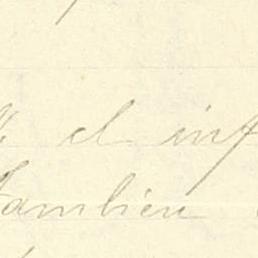 el inf
Tambien